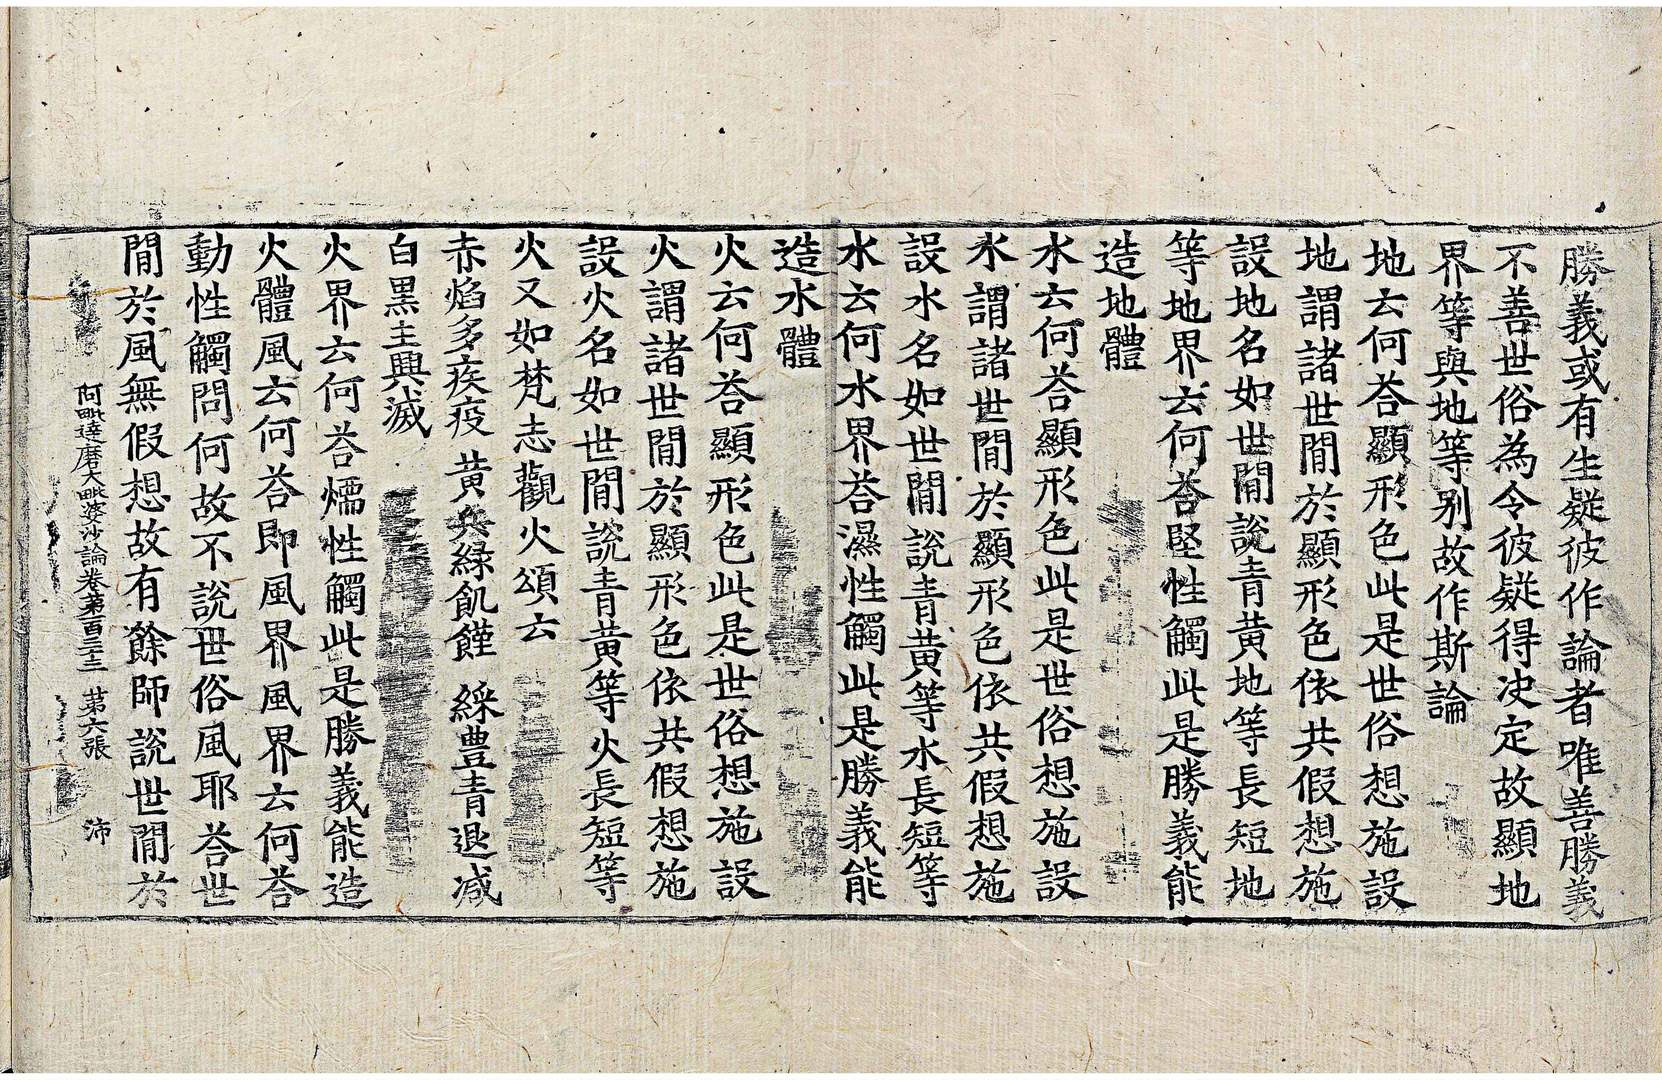 勝義或有生疑彼作論者唯善勝義
不善世俗為令彼疑得決定故顯地
界等與地等别故作斯論
地云何荅顯形色此是世俗想施設
地謂諸世閒於顯形色依共假想施
設地名如世閒說青黄地等長短地
等地界云何荅堅性觸此是勝義能
造地體
水云何荅顯形色此是世俗想施設
水謂諸世閒於顯形色依共假想施
設水名如世閒說青黄等水長短等
水云何水界荅濕性觸此是勝義能
造水體
火云何荅顯形色此是世俗想施設
火謂諸世閒於顯形色依共假想施
設火名如世閒說青黄等火長短等
火又如梵志觀火頌云
赤焰多疾疫 黄兵綠飢饉 綵豊青退減
白黒主興滅
火界云何荅煗性觸此是勝義能造
火體風云何荅即風界風界云何荅
動性觸問何故不說世俗風耶荅世
閒於風無假想故有餘師說世閒於
阿毗達磨大毗婆沙論卷第一百三十三 第六張 沛